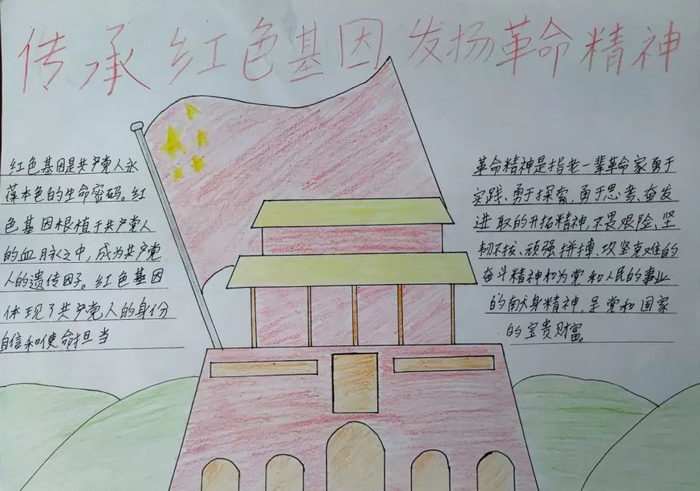 传承红色基因 发扬革命精神
红色基因是共产党人永
葆本色的生命密码。红
色基因根植于共产党人
的血脉之中，成为共产党
人的遗传因子。红色基因
体现了共产党人的身份
自信和使命担当
革命精神是指老一辈革命家勇于
实践、勇于探索、勇于思考、奋发
进取的开拓精神，不畏艰险、坚
韧不拔、顽强拼搏、攻坚克难的
奋斗精神和为党和人民的事业
的献身精神，是党和国家
的宝贵财富